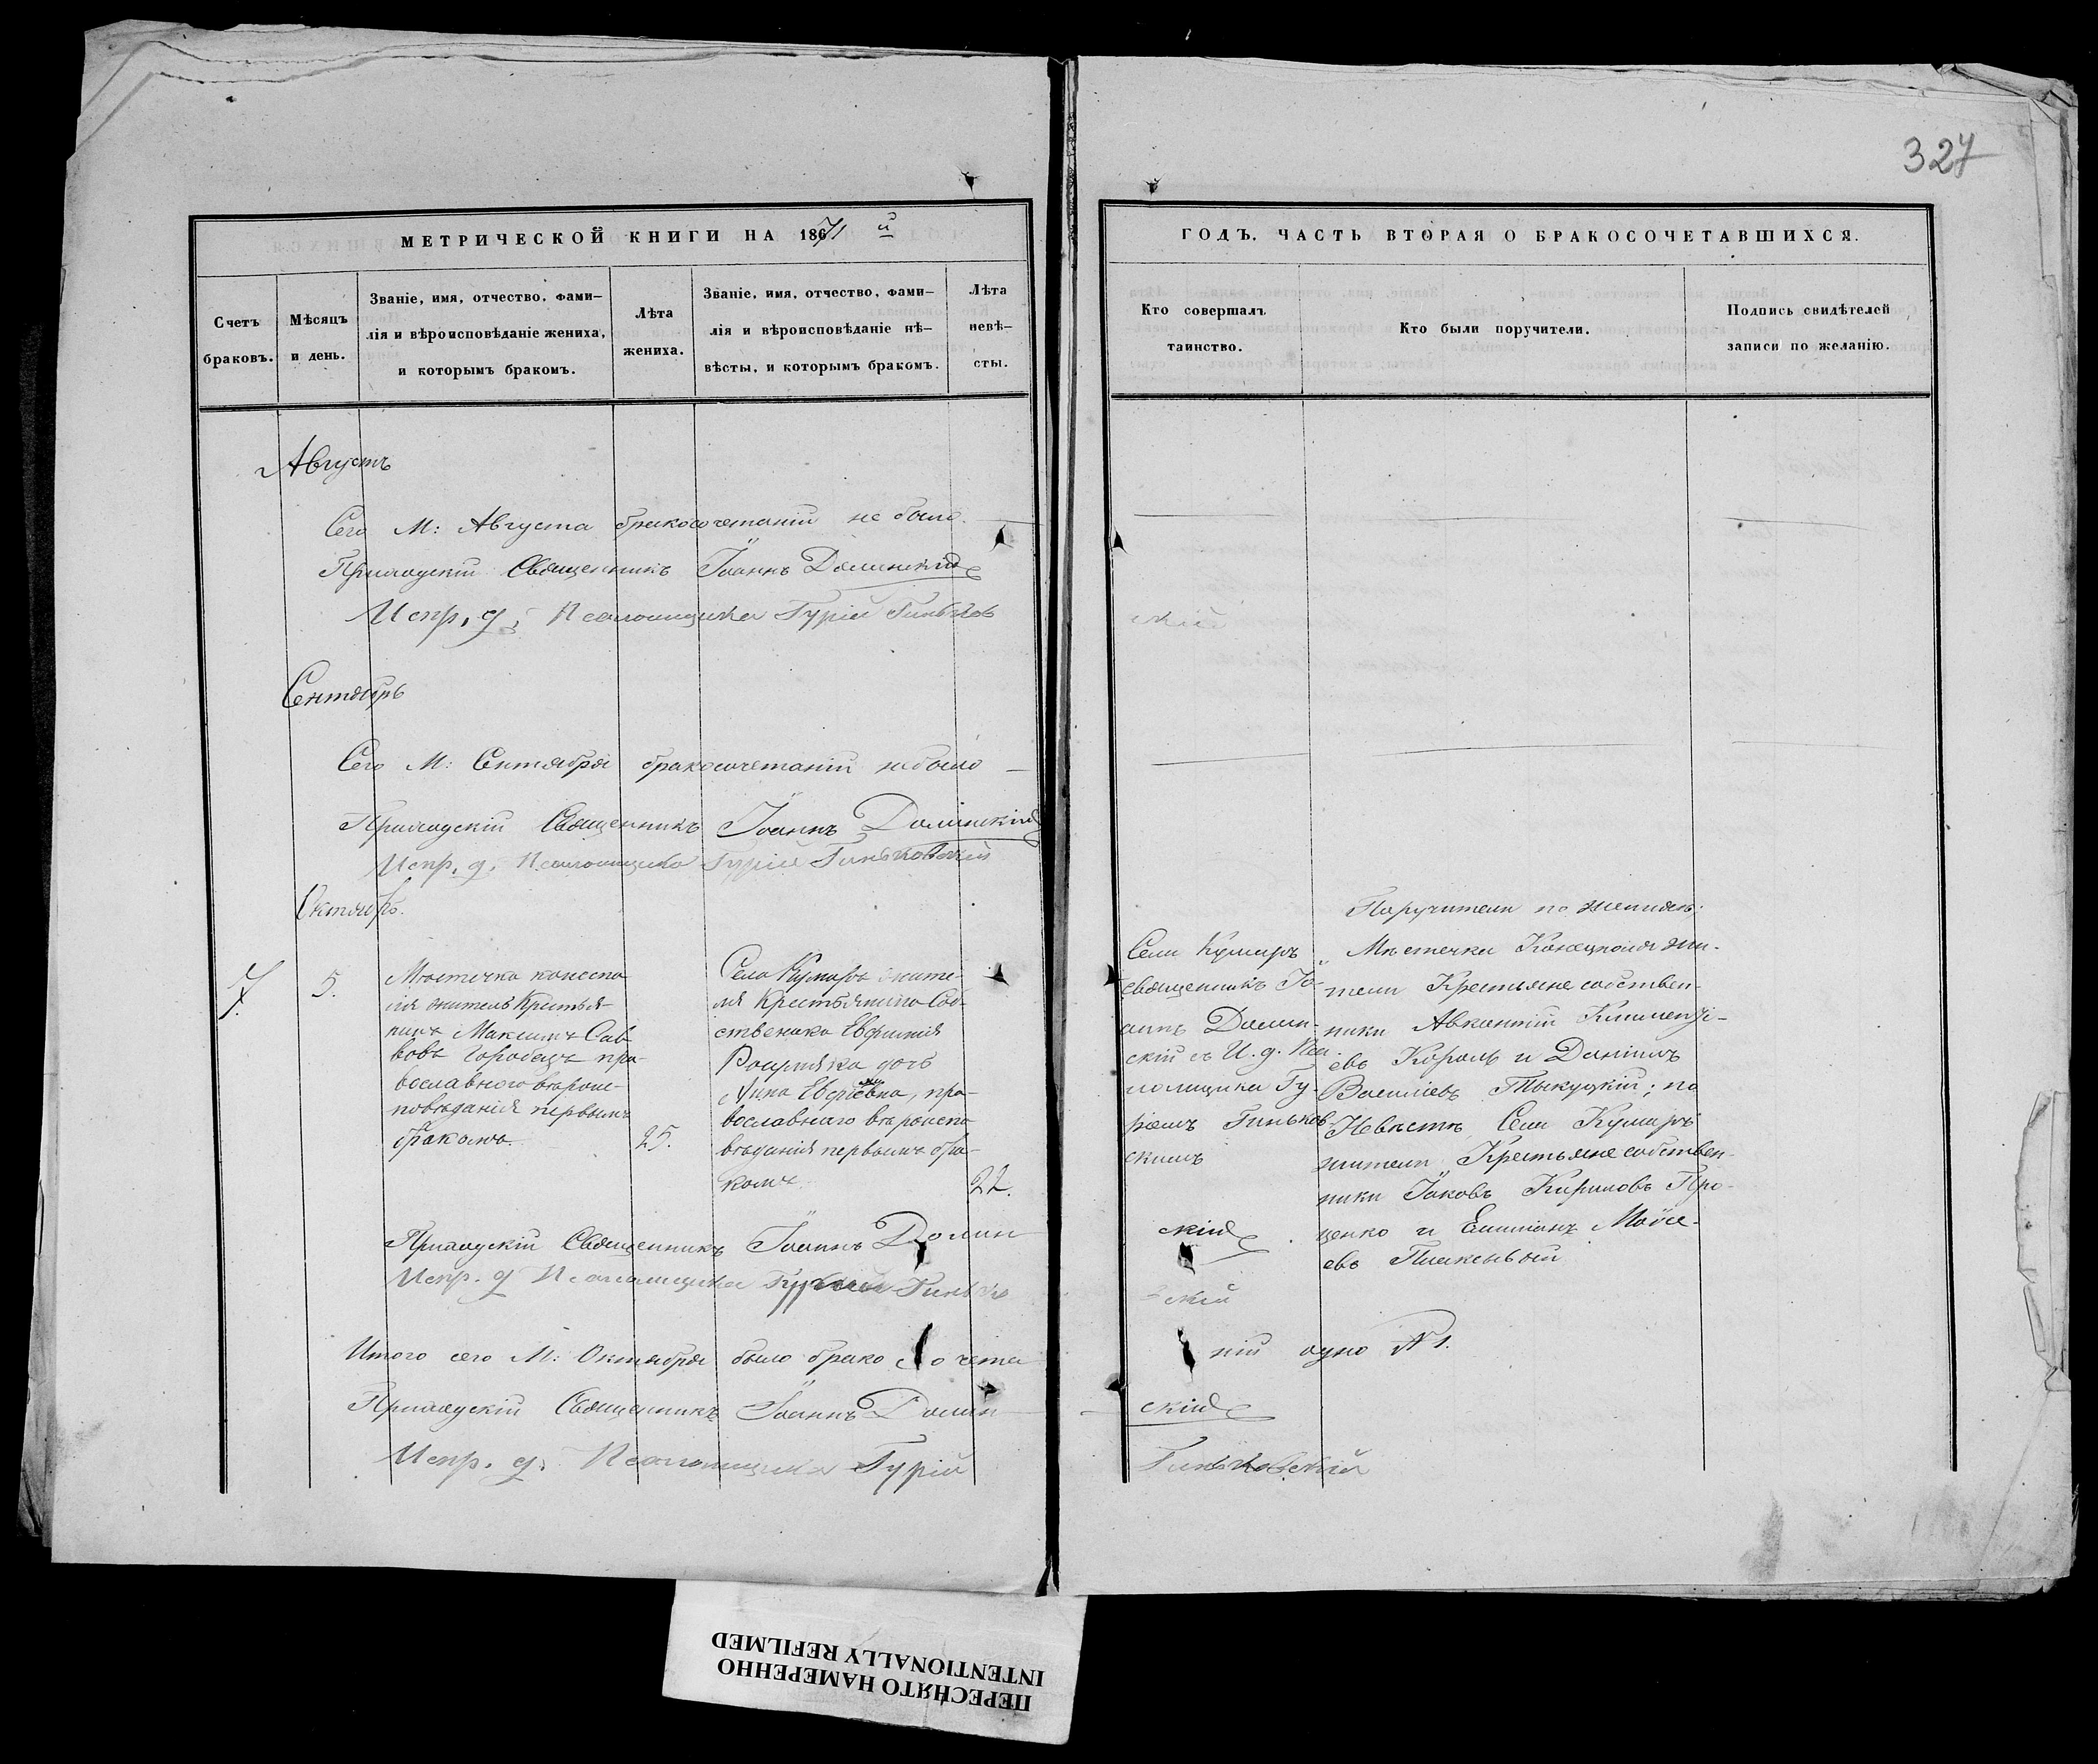 327
МЕТРИЧЕСКОЙ КНИГИ НА 1871 й
ГОДЪ. ЧАСТЬ ВТОРАЯ О БРАКОСОЧЕТАВШИХСЯ.
Счетъ
браковъ.
Мѣсяцъ
и день.
Званіе, имя, отчество, фами-
лія и вѣроисповѣданіе жениха,
и которымъ бракомъ.
Лѣта
жениха.
Званіе, имя, отчество, фами-
лія и вѣроисповѣданіе нѣ-
вѣсты, и которымъ бракомъ.
Лѣта
невѣ-
сты.
Кто совершалъ
таинство.
Кто были поручители.
Подпись свидѣтелей
записи по желанію.
Августъ
Сего М: Августа бракосочетаній не было.
Приходскій Священникъ Іоаннъ Долинскій
Испр. д. Псаломщика Гурій Гиньков
скій
Сентябрь
Сего М: Сентября бракосочетаній не было
Приходскій Священникъ Іоаннъ Долинскій
Испр. д. Псаломщика Гурій Гиньковскій
Октябрь.
7.
5.
Мѣстечка конецпо
ля житель Крестья-
нинъ Максимъ Сав
вовъ Горобецъ пра-
вославного вѣроис-
повѣданія первымъ
бракомъ.
25.
Села Кумаръ жите-
ля Крестьянина Соб-
ственика Евфимія
дочь
Анна Евфіміевна, пра-
вославнаго вѣроиспо
вѣданія первымъ бра-
комъ
22.
Села Кумаръ
священникъ Іо-
аннъ Долин-
скій съ И. д. Пса-
ломщика Гу-
ріемъ Гиньков-
скимъ
Поручители по женихѣ:
Мѣстечка Конецполя жи-
тели Крестьяне собствен-
ники Авксентій Климентi-
евъ Король и Даніилъ
Василіевъ Тыкуцкій; по
Невѣстѣ Села Кумаръ
жители Крестьяне собствен-
ники Іаковъ Кириловъ Про-
ценко и Емиліанъ Мойсе-
евъ
Приходскій Священникъ Іоаннъ Долин
скій
Испр. д Псаломщика Гурій Гиньков
скій
Итого сего М: Октября было бракосочета
ній одно № 1.
Приходскій Священникъ Іоаннъ Долин-
скій
Испр. д. Псаломщика Гурій
Гиньковскій
ПЕРЕСНЯТО НАМЕРЕННО
INTENTIONALLY REFILMED